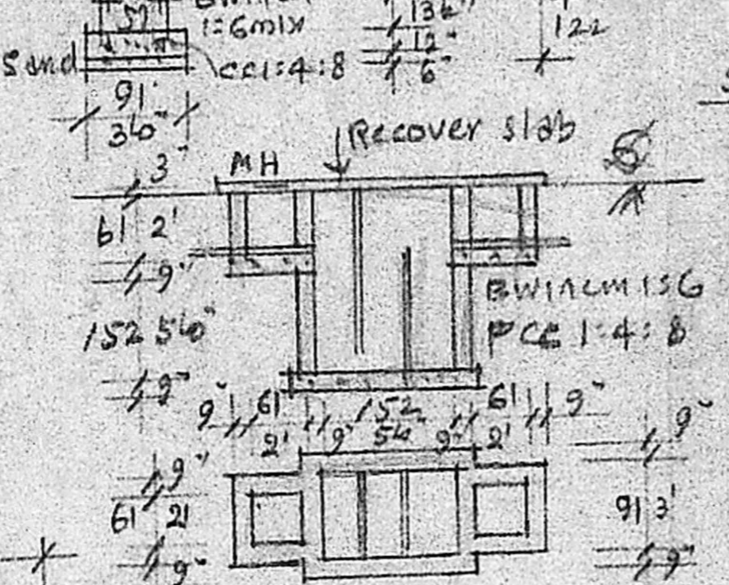 1:6mix
Sand
CC1:4:8
136"
12"
6"
122
91
36"
Recover slab
MH
3"
61 2'
9"
152 5'0"
9"
BW in cm 1:6
PCC 1:4:8
9" 61 152 61 9"
2' 9" 9" 2'
9"
61 2'
9"
9"
91 3'
9"